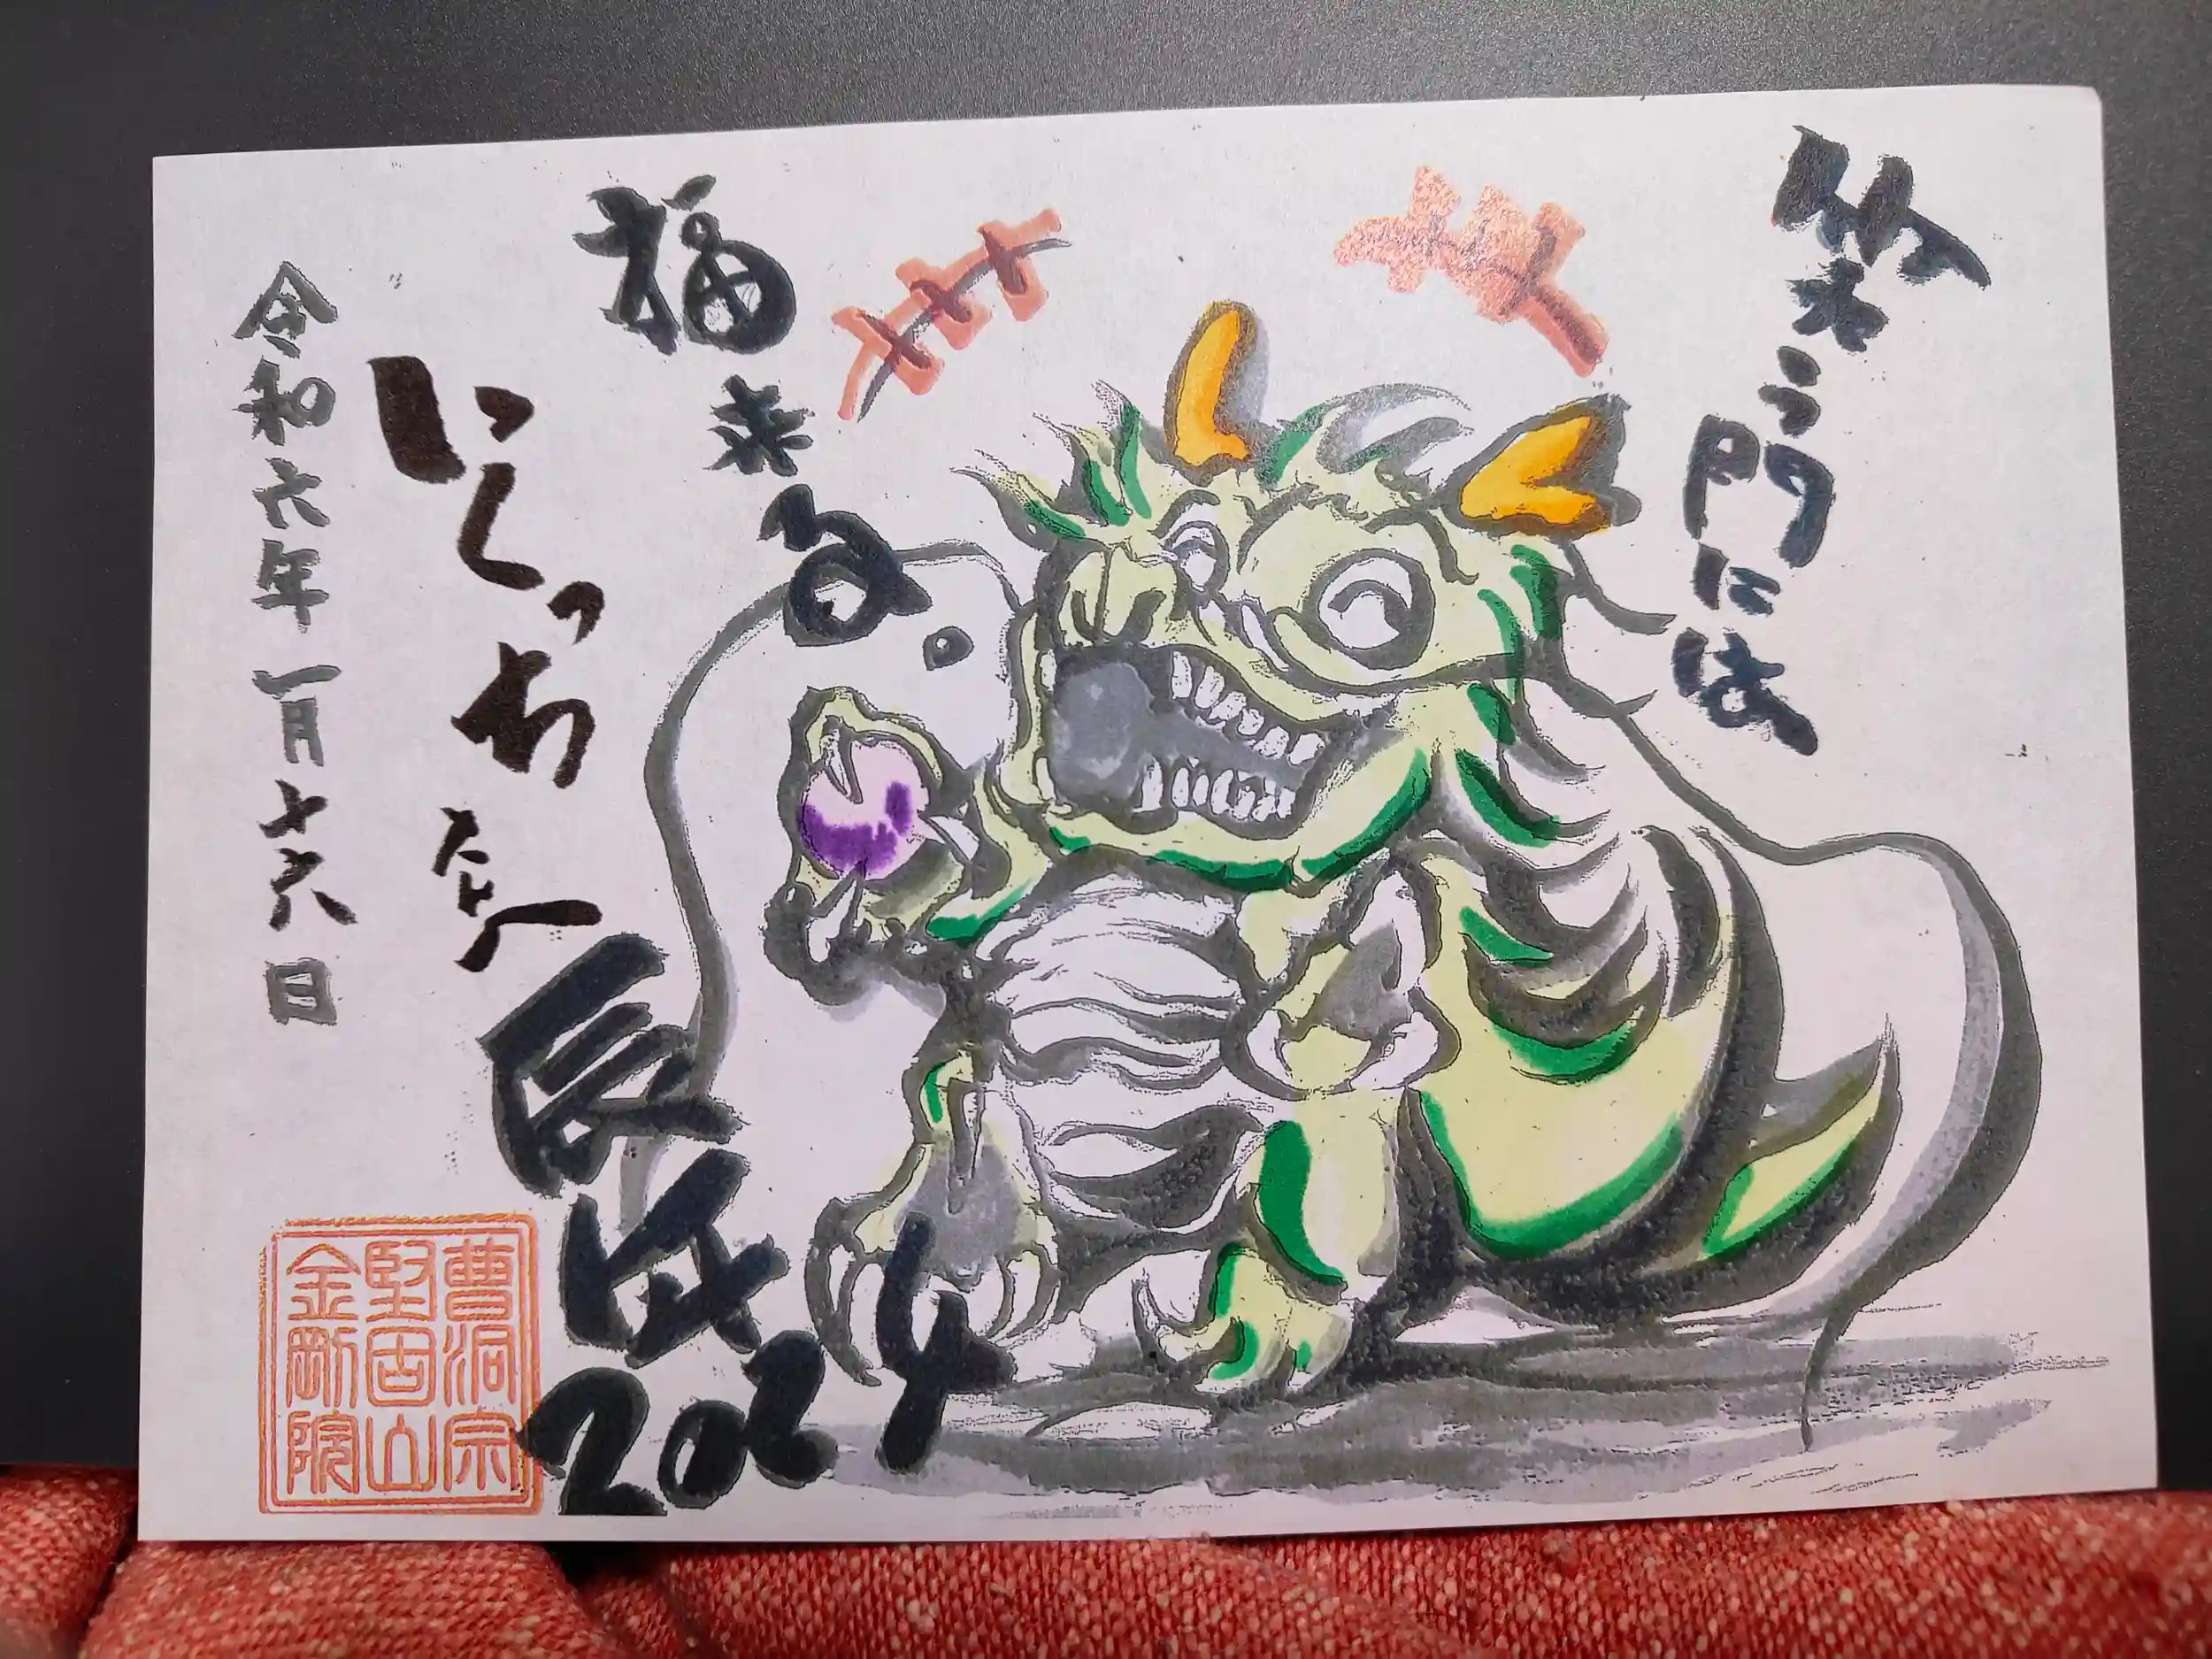 笑う門には
福来る
辰年
2024
令和六年一月十六日
曹洞宗
堅固山
金剛院